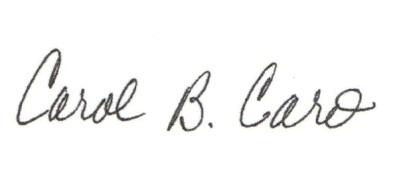 Carol B. Caro